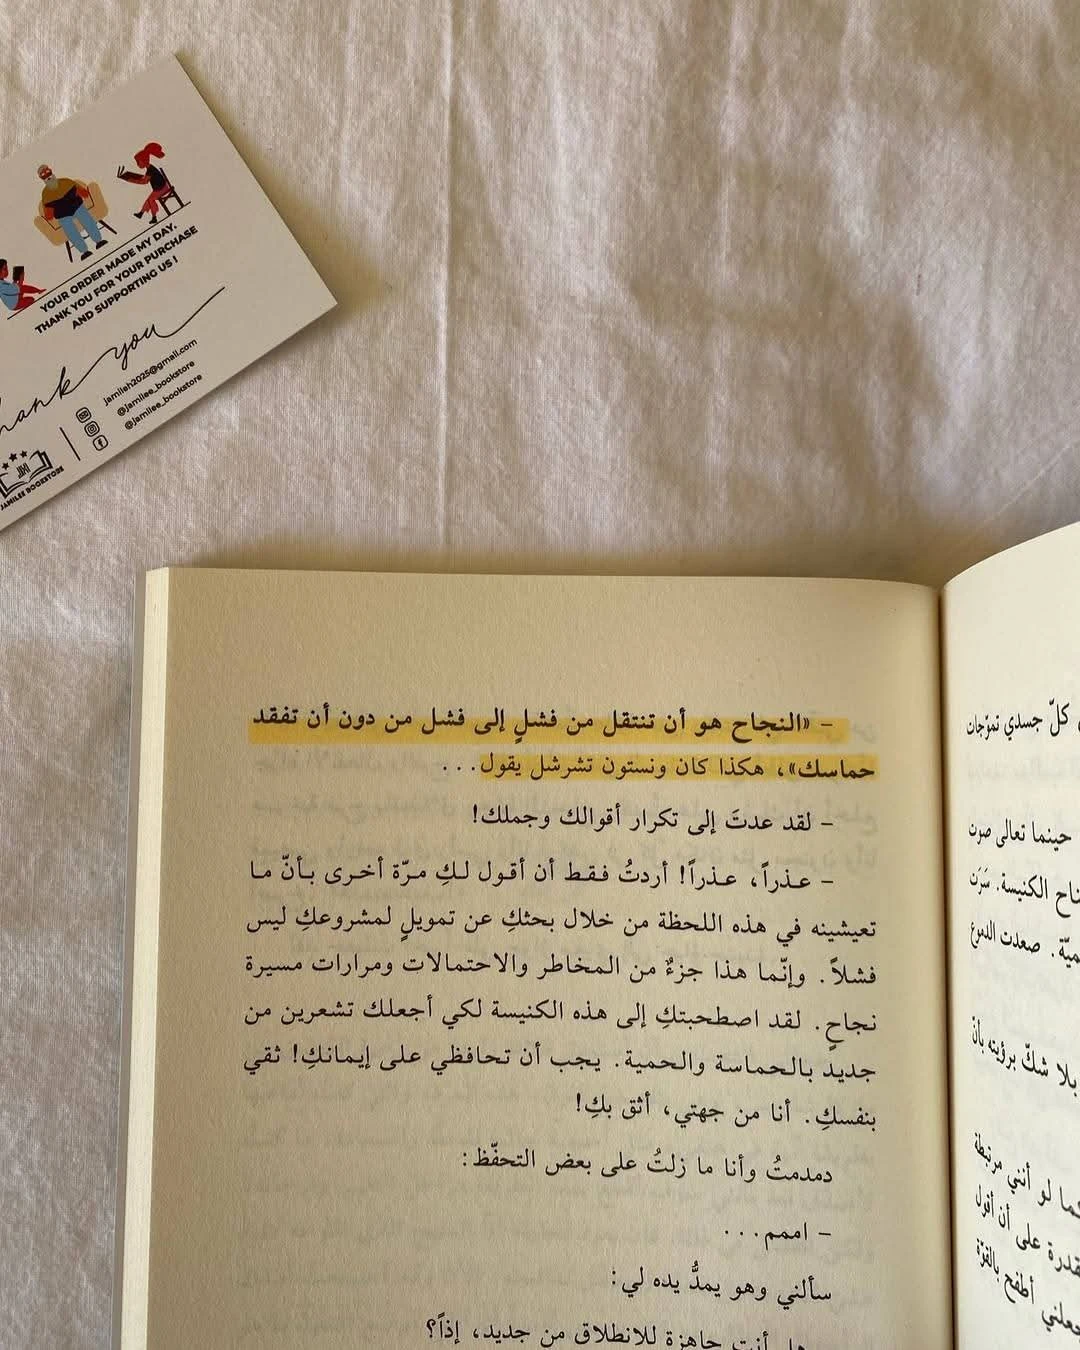 YOUR ORDER MADE MY DAY.
THANK YOU FOR YOUR PURCHASE
AND SUPPORTING US !
you
jamileh2025@gmail.com
@jamilee_bookstore
@jamilee_bookstore
JAMILEE BOOKSTORE
كلّ جسدي تموّجات
حينما تعالى صوت
الكنيسة. سَرَت
صعدت الدموع
بلا شكّ برؤيته بأنّ
لو أنني مرتبطة
على أن أقول
أطفح بالقوّة
– «النجاح هو أن تنتقل من فشلٍ إلى فشل من دون أن تفقد
حماسك»، هكذا كان ونستون تشرشل يقول...
– لقد عدتَ إلى تكرار أقوالك وجملك!
– عذراً، عذراً! أردتُ فقط أن أقول لكِ مرّة أخرى بأنّ ما
تعيشينه في هذه اللحظة من خلال بحثكِ عن تمويلٍ لمشروعكِ ليس
فشلاً. وإنّما هذا جزءٌ من المخاطر والاحتمالات ومرارات مسيرة
نجاحٍ. لقد اصطحبتكِ إلى هذه الكنيسة لكي أجعلك تشعرين من
جديد بالحماسة والحمية. يجب أن تحافظي على إيمانكِ! ثقي
بنفسكِ. أنا من جهتي، أثق بكِ!
دمدمتُ وأنا ما زلتُ على بعض التحفّظ:
– اممم...
سألني وهو يمدُّ يده لي:
أنت جاهزة للانطلاق من جديد، إذاً؟